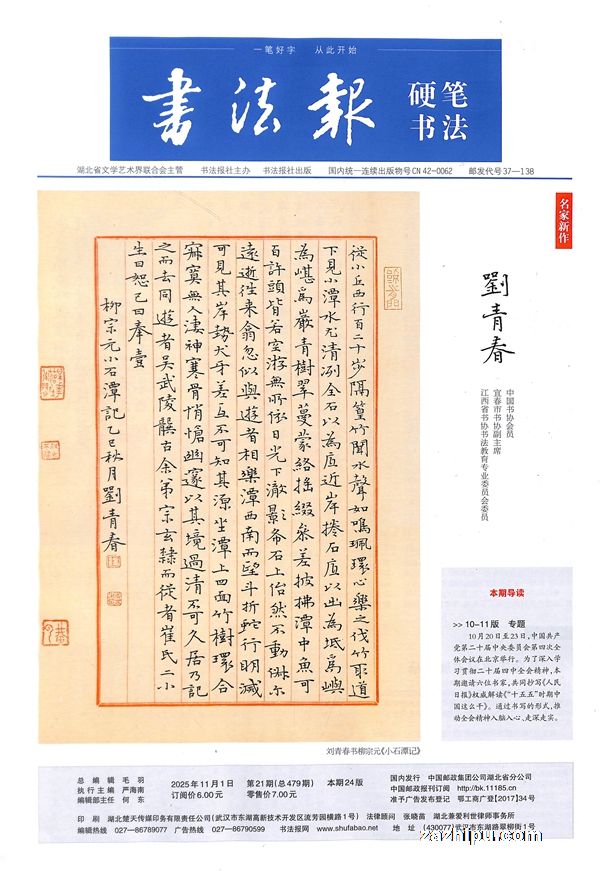 一笔好字 从此开始
书法报 硬笔书法
湖北省文学艺术界联合会主管 书法报社主办 书法报社出版 国内统一连续出版物号CN 42-0062 邮发代号37—138
名家新作
劉青春
中国书协会员
宜春市书协副主席
江西省书协书法教育专业委员会委员
從小丘西行百二十步隔篁竹聞水聲如鳴珮環心樂之伐竹取道
下見小潭水尤清冽全石以為底近岸捲石底以出為坻為嶼
為嵁為巖青樹翠蔓蒙絡搖綴參差披拂潭中魚可
百許頭皆若空游無所依日光下澈影布石上佁然不動俶尔
遠逝往来翕忽似與遊者相樂潭西南而望斗折蛇行明滅
可見其岸勢犬牙差互不可知其源坐潭上四面竹樹環合
寂寞無人凄神寒骨悄愴幽邃以其境過清不可久居乃記
之而去同遊者吴武陵龔古余弟宗玄隸而從者崔氏二小
生曰恕己曰奉壹
柳宗元小石潭記乙巳秋月劉青春
刘青春书柳宗元《小石潭记》
本期导读
>> 10-11版 专题
10月20日至23日,中国共产
党第二十届中央委员会第四次全
体会议在北京举行。为了深入学
习贯彻二十届四中全会精神,本
期邀请六位书家,共同抄写《人民
日报》权威解读《“十五五”时期中
国这么干》。通过书写的形式,推
动全会精神入脑入心、走深走实。
总编辑 毛羽
执行主编 严海南
编辑部主任 何东
2025年11月1日 第21期(总479期) 本期24版
订阅价6.00元 零售价7.00元
国内发行 中国邮政集团公司湖北省分公司
中国邮政报刊订阅 http://bk.11185.cn
准予广告发布登记 鄂工商广登[2017]34号
印刷 湖北楚天传媒印务有限责任公司(武汉市东湖高新技术开发区流芳园横路1号) 法律顾问 张晓苗 湖北兼爱利世律师事务所
编辑热线 027—86789077 广告热线 027—86790599 书法报网 www.shufabao.net 地址 (430077)武汉市东湖路翠柳街1号
zazhipu.com